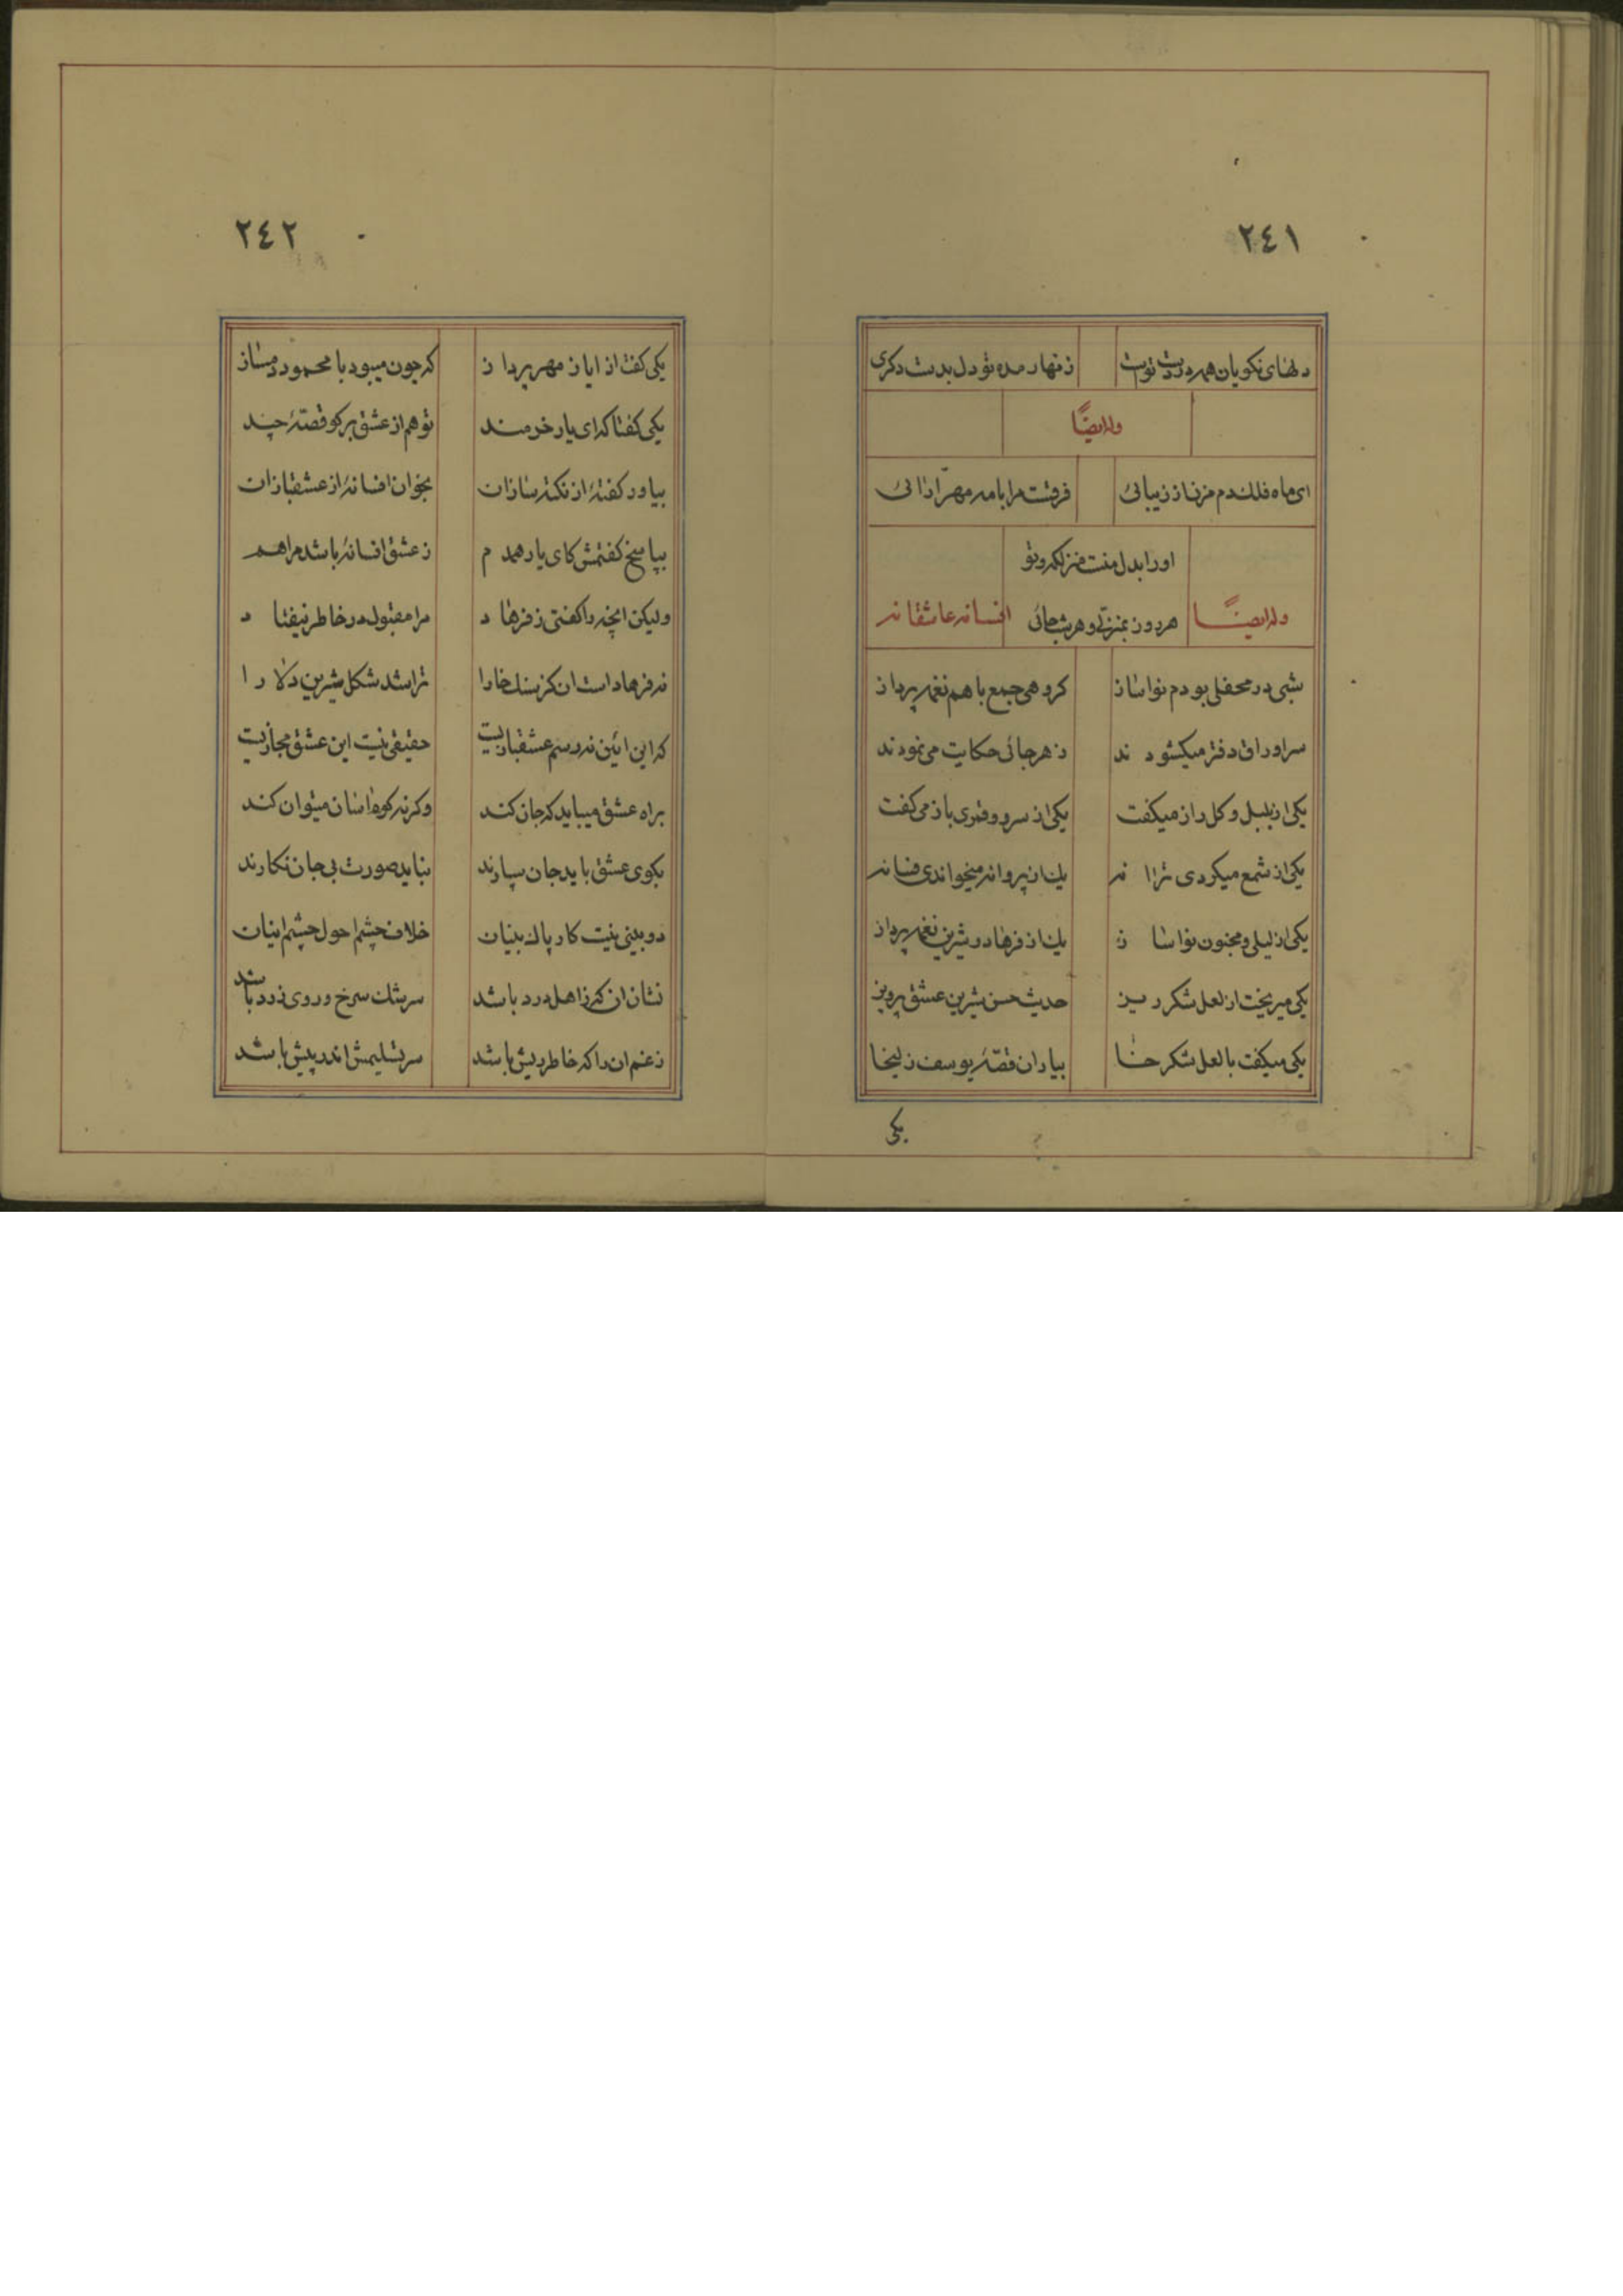 ٢٤١
دلهای نکویان همه در دست توست زنهار مده تو دل بدست دکری
وله ایضًا
ای ماه فلک دم مزن از زیبائی فرقست مرا با مه مهرآرائی
او را بدل منست منزلکه و تو
هر روز بمنزلی و هر شب جائی
وله ایضًا افسانه عاشقانه
شبی در محفلی بودم نواساز کروهی جمع با هم نغمه پرداز
سر اوراق دفتر میکشودند ز هر جائی حکایت می نمودند
یکی از بلبل و کل راز میکفت یکی از سرو و قمری باز می کفت
یکی از شمع میکردی ترانه یک از پروانه میخواندی فسانه
یکی از لیلی و مجنون نواساز یک از فرهاد و شیرین نغمه پرداز
یکی میریخت از لعل شکرریز حدیث حسن شیرین عشق پرویز
یکی میکفت با لعل شکرخا بیاران قصّهٔ یوسف زلیخا
یکی
٢٤٢
یکی کفت از ایاز مهرپرداز که چون میبود با محمود دمساز
یکی کفتا که ای یار خردمند تو هم از عشق بر کو قصّهٔ چند
بیاور کفتهٔ از نکته سازان بخوان افسانهٔ از عشقبازان
بپاسخ کفتمش کای یار همدم ز عشق افسانهٔ باشد مرا هم
ولیکن انچه را کفتی ز فرهاد مرا مقبول در خاطر نیفتاد
نه فرهاد است ان کز سنک خارا تراشد شکل شیرین دلارا
که این ائین نه رسم عشقبازیست حقیقی نیست این عشق مجازیست
براه عشق میباید که جان کند وکرنه کوه اسان میتوان کند
بکوی عشق باید جان سپارند نباید صورت بی جان نکارند
دو بینی نیست کار پاک بینان خلاف چشم احول چشم اینان
نشان ان که ز اهل درد باشد سرشک سرخ و روی زرد باشد
ز غم ان را که خاطر ریش باشد سر تسلیمش اندر پیش باشد